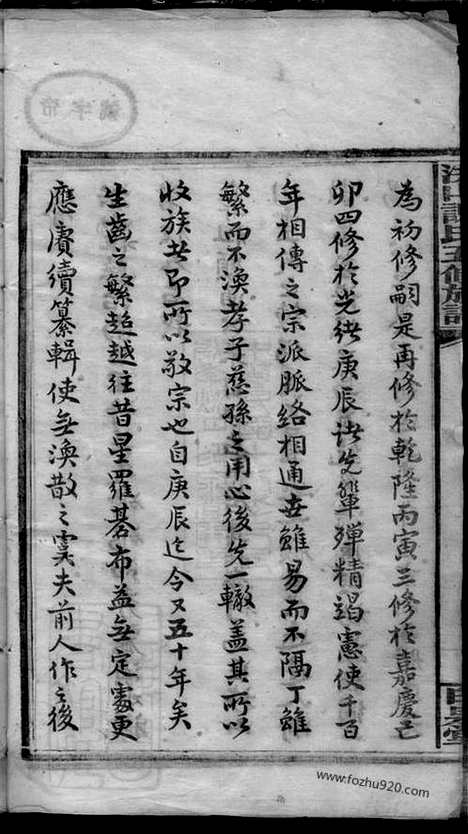 為初修嗣是再修於乾隆丙寅三修於嘉慶己
卯四修於光緒庚辰諸先輩殫精竭慮使千百
年相傳之宗派脈絡相通世雖易而不隔丁雖
繁而不渙孝子慈孫之用心後先一轍蓋其所以
收族者即所以敬宗也自庚辰迄今又五十年矣
生齒之繁超越往昔星羅碁布益無定處更
應賡續纂輯使無渙散之虞夫前人作之後
氏五修族譜
www.fozhu920.com